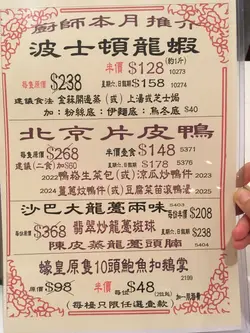 廚師本月推介
波士頓龍蝦
每隻原價 $238 半價 $128 (約1斤) 10273
或 $158 10274
建議食法 金蒜開邊蒸 (或) 上湯或芝士焗
加：粉絲底：伊麵底：烏冬底 $40
北京片皮鴨
每隻原價 $268 半價堂食 $148 5371
建議 (二食) 加$60 $168 5376
2022 鴨崧生菜包 (或) 涼瓜炒鴨件 2023
2024 薑蔥炆鴨件 (或) 豆腐菜苗滾鴨湯 2025
沙巴大龍躉兩味 5403
每份原價 $368 翡翠炒龍躉斑球 每份半價 $208
陳皮蒸龍躉頭腩 5404 $238
蠔皇原隻10頭鮑魚扣鵝掌
每位原價 $98 半價 每位 $48 (2位起) 2199
(每檯只限任選壹款) 加一服務費